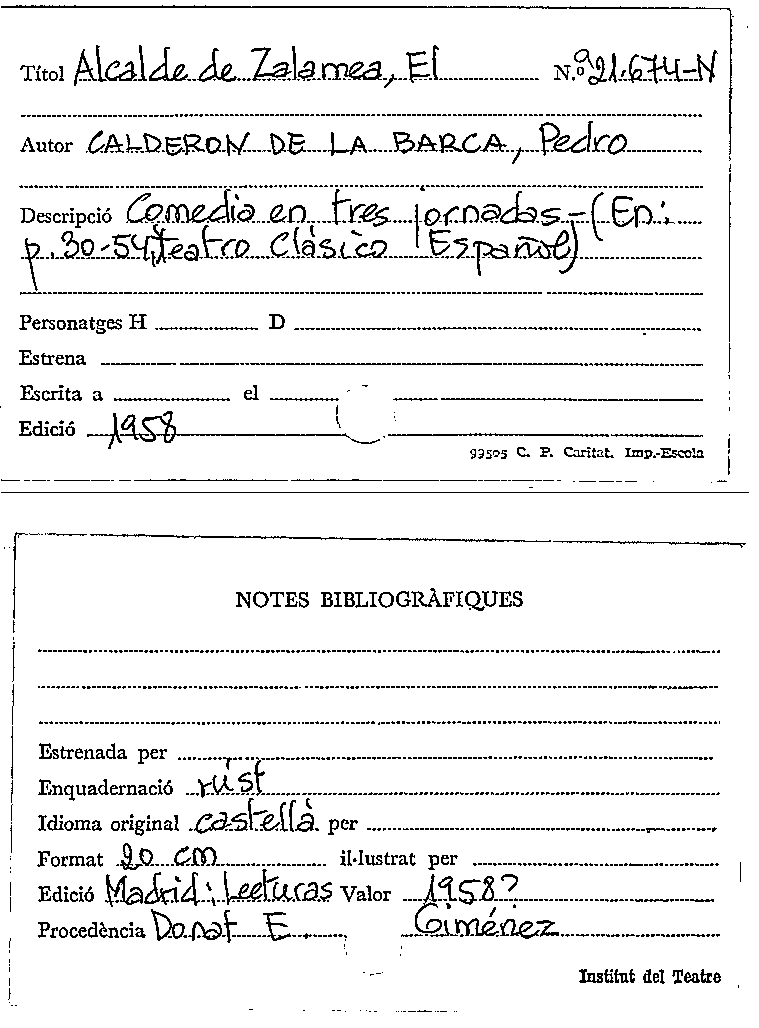 Títol Alcalde de Zalamea, El N.º 21.674-N
Autor CALDERON DE LA BARCA, Pedro
Descripció Comedia en tres jornadas.-(En:
p.30-54, teatro Clásico Español)
Personatges H D
Estrena
Escrita a el
Edició 1958
99505 C. P. Caritat. Imp.-Escola
NOTES BIBLIOGRÀFIQUES
Estrenada per
Enquadernació rúst
Idioma original castellà per
Format 20 cm il·lustrat per
Edició Madrid: Lecturas Valor 1958?
Procedència Donat E. Giménez
Institut del Teatre